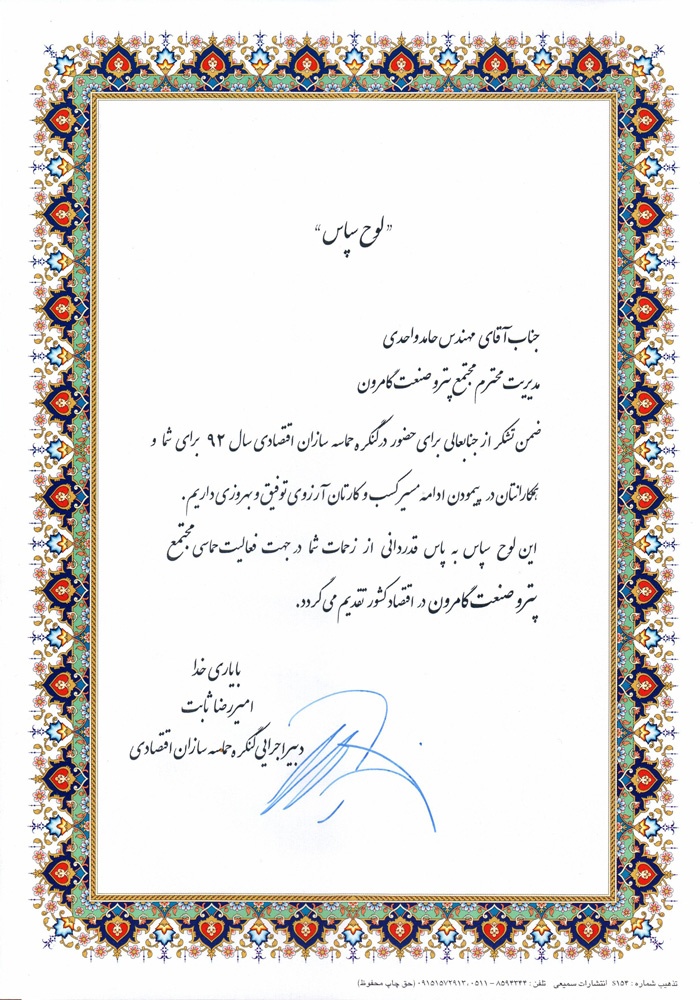 "لوح سپاس"
جناب آقای مهندس حامد واحدی
مدیریت محترم مجتمع پترو صنعت گامرون
ضمن تشکر از جنابعالی برای حضور در کنگره حماسه سازان اقتصادی و سال ۹۲ برای شما و
همکارانتان در پیمودن ادامه مسیر کسب و کارتان آرزوی توفیق و بهروزی داریم.
این لوح سپاس به پاس قدردانی از زحمات شما در جهت فعالیت حماسی مجتمع
پترو صنعت گامرون در اقتصاد کشور تقدیم می گردد.
با یاری خدا
امیررضا ثابت
دبیر اجرایی کنگره حماسه سازان اقتصادی
تذهیب شماره : S۱۵۴ انتشارات سمیعی تلفن : ۸۵۹۴۳۴۴ - ۰۵۱۱ ، ۰۹۱۵۱۵۷۲۹۱۳ (حق چاپ محفوظ)